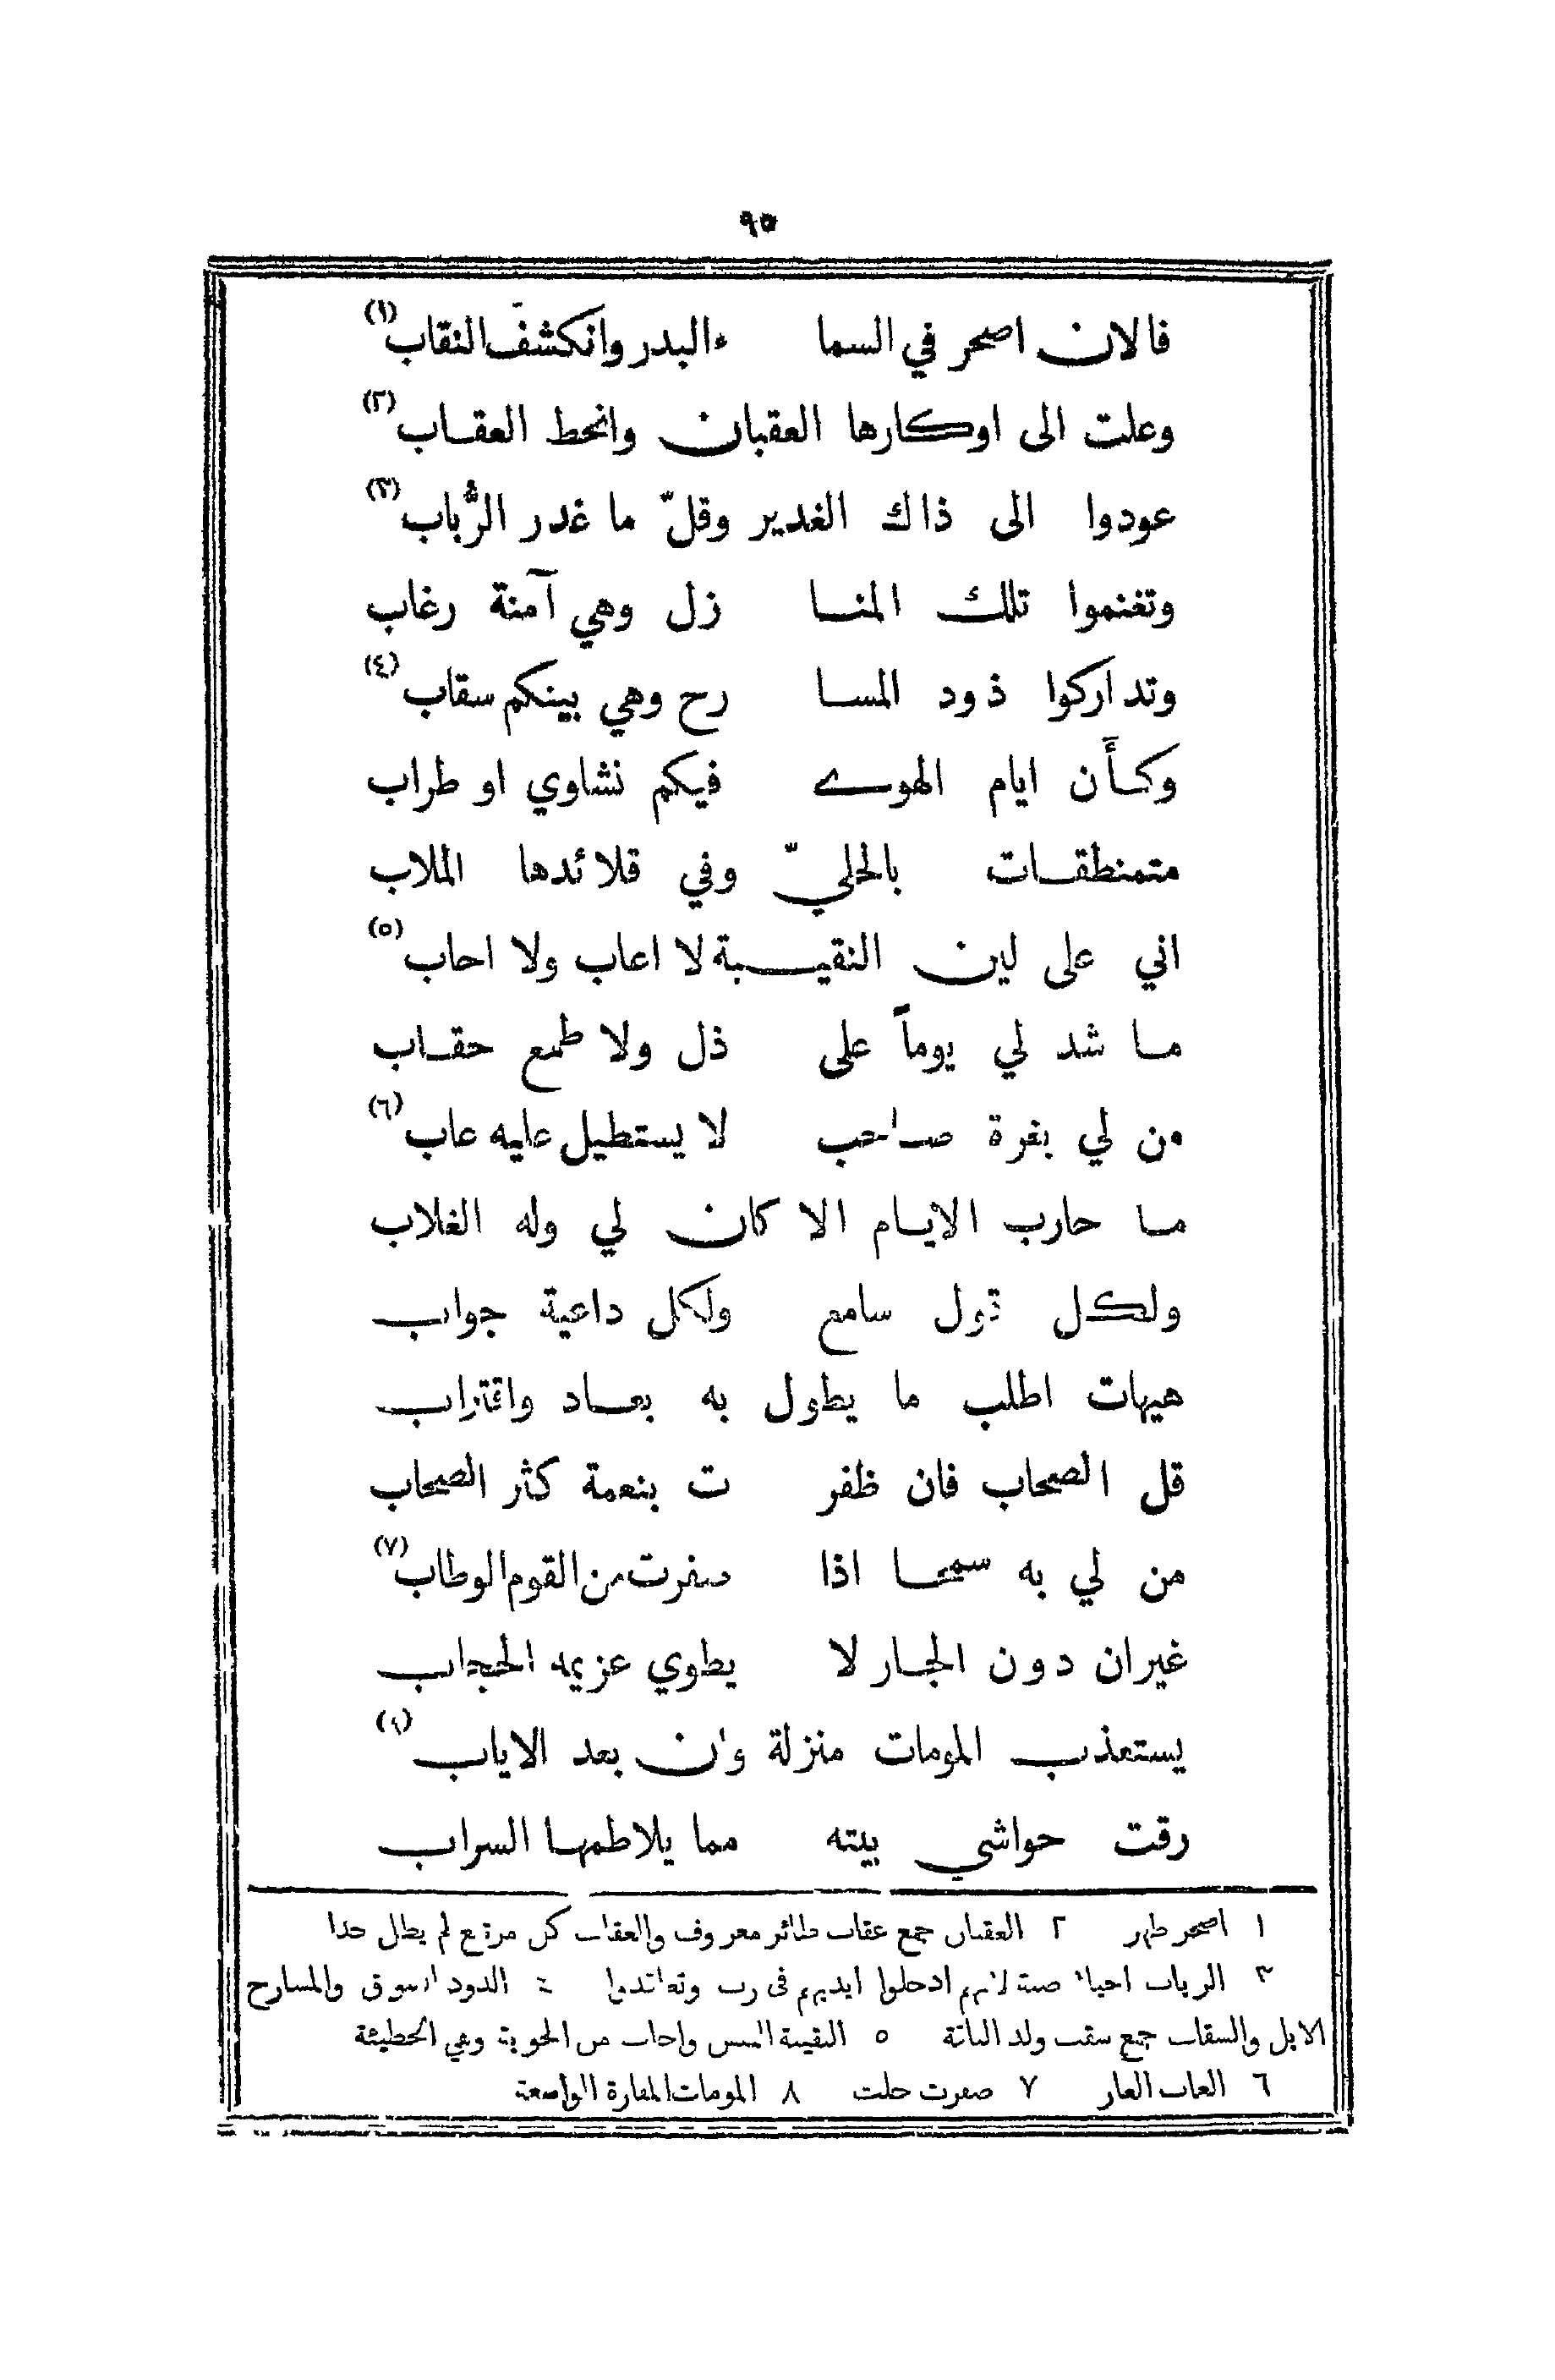 ٩٥
فالان اصحر في السما ء البدر وانكشف النقاب (١)
وعلت الى اوكارها العقبان وانحط العقاب (٢)
عودوا الى ذاك الغدير وقلّ ما غدر الرُّباب (٣)
وتغنموا تلك المنا زل وهي آمنة رغاب
وتداركوا ذود المسا رح وهي بينكم سقاب (٤)
وكأن ايام الهوى فيكم نشاوي او طراب
متمنطقات بالحليّ وفي قلائدها الملاب
اني على لين النقيبة لا اعاب ولا احاب (٥)
ما شد لي يوماً على ذل ولا طمع حقاب
من لي بغرة صاحب لا يستطيل عليه عاب (٦)
ما حارب الايام الا كان لي وله الغلاب
ولكل قول سامع ولكل داعية جواب
هيهات اطلب ما يطول به بعاد واقتراب
قل الصحاب فان ظفر ت بنعمة كثر الصحاب
من لي به سمحا اذا صفرت من القوم الوطاب (٧)
غيران دون الجار لا يطوي عزيمه الحجاب
يستعذب المومات منزلة وان بعد الاياب (٨)
رقت حواشي بيته مما يلاطمها السراب
١ اصحر ظهر ٢ العقبان جمع عقاب طائر معروف والعقاب كل مرتفع لم يطل جدا
٣ الرباب احياء ضبة لانهم ادخلوا ايديهم في رب وتعاقدوا ٤ الذود السوق والمسارح
الابل والسقاب جمع سقب ولد الناقة ٥ النقيبة النفس واحاب من الحوبة وهي الخطيئة
٦ العاب العار ٧ صفرت خلت ٨ المومات المفازة الواسعة